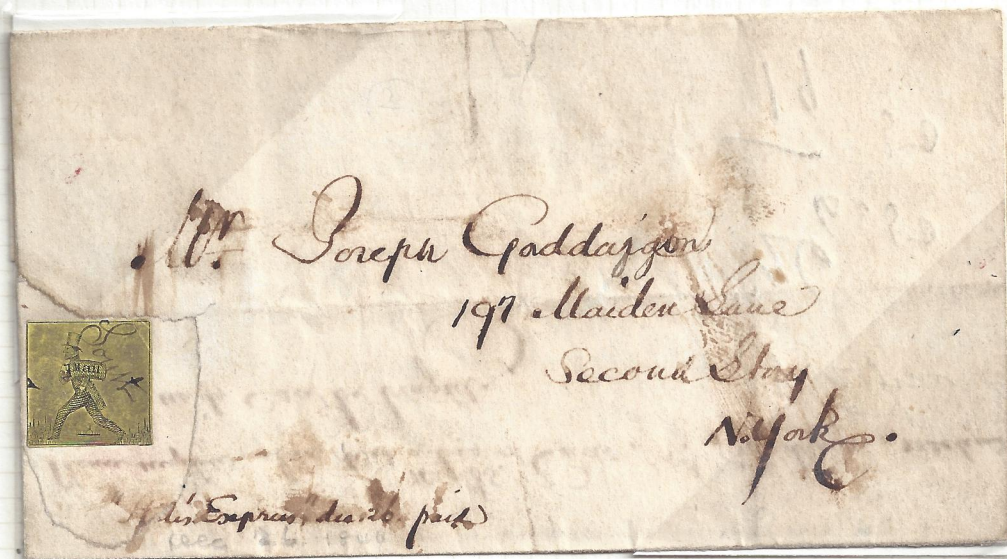 Mr. Joseph Goddar
197 Maiden Lane
Second Story
N. York.
Mail
Express, paid
Dec 26 184